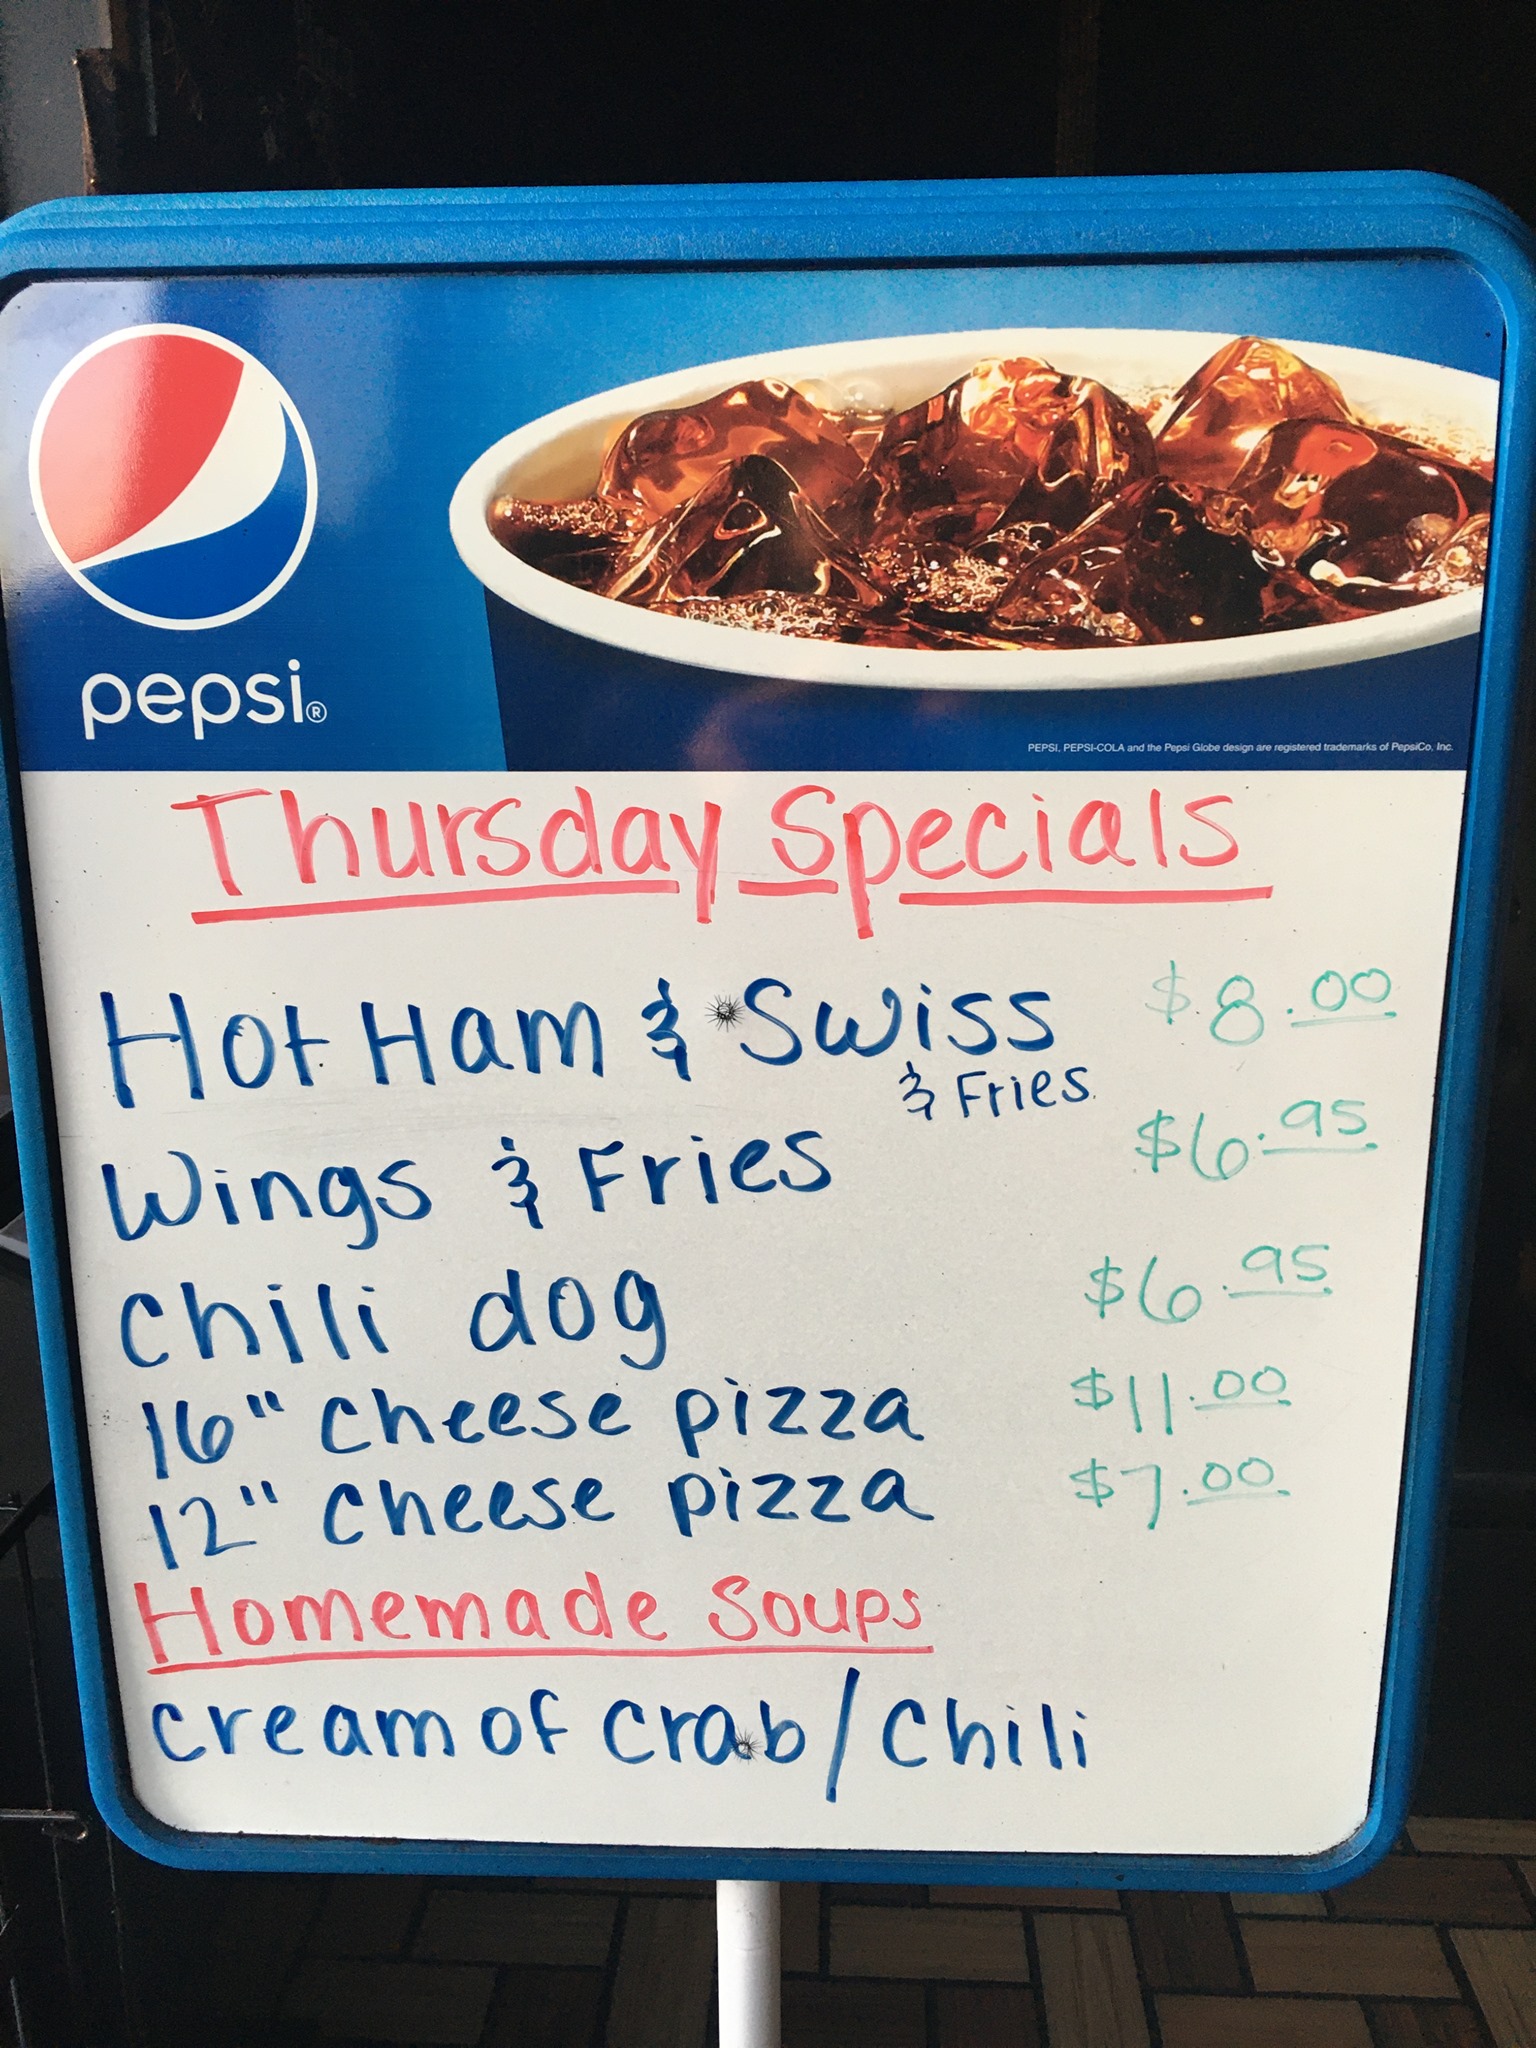 pepsi®
PEPSI, PEPSI-COLA and the Pepsi Globe design are registered trademarks of PepsiCo, Inc.
Thursday Specials
Hot Ham & Swiss $8.00
& Fries
Wings & Fries $6.95
Chili dog $6.95
16" Cheese pizza $11.00
12" Cheese pizza $7.00
Homemade Soups
Cream of Crab/Chili